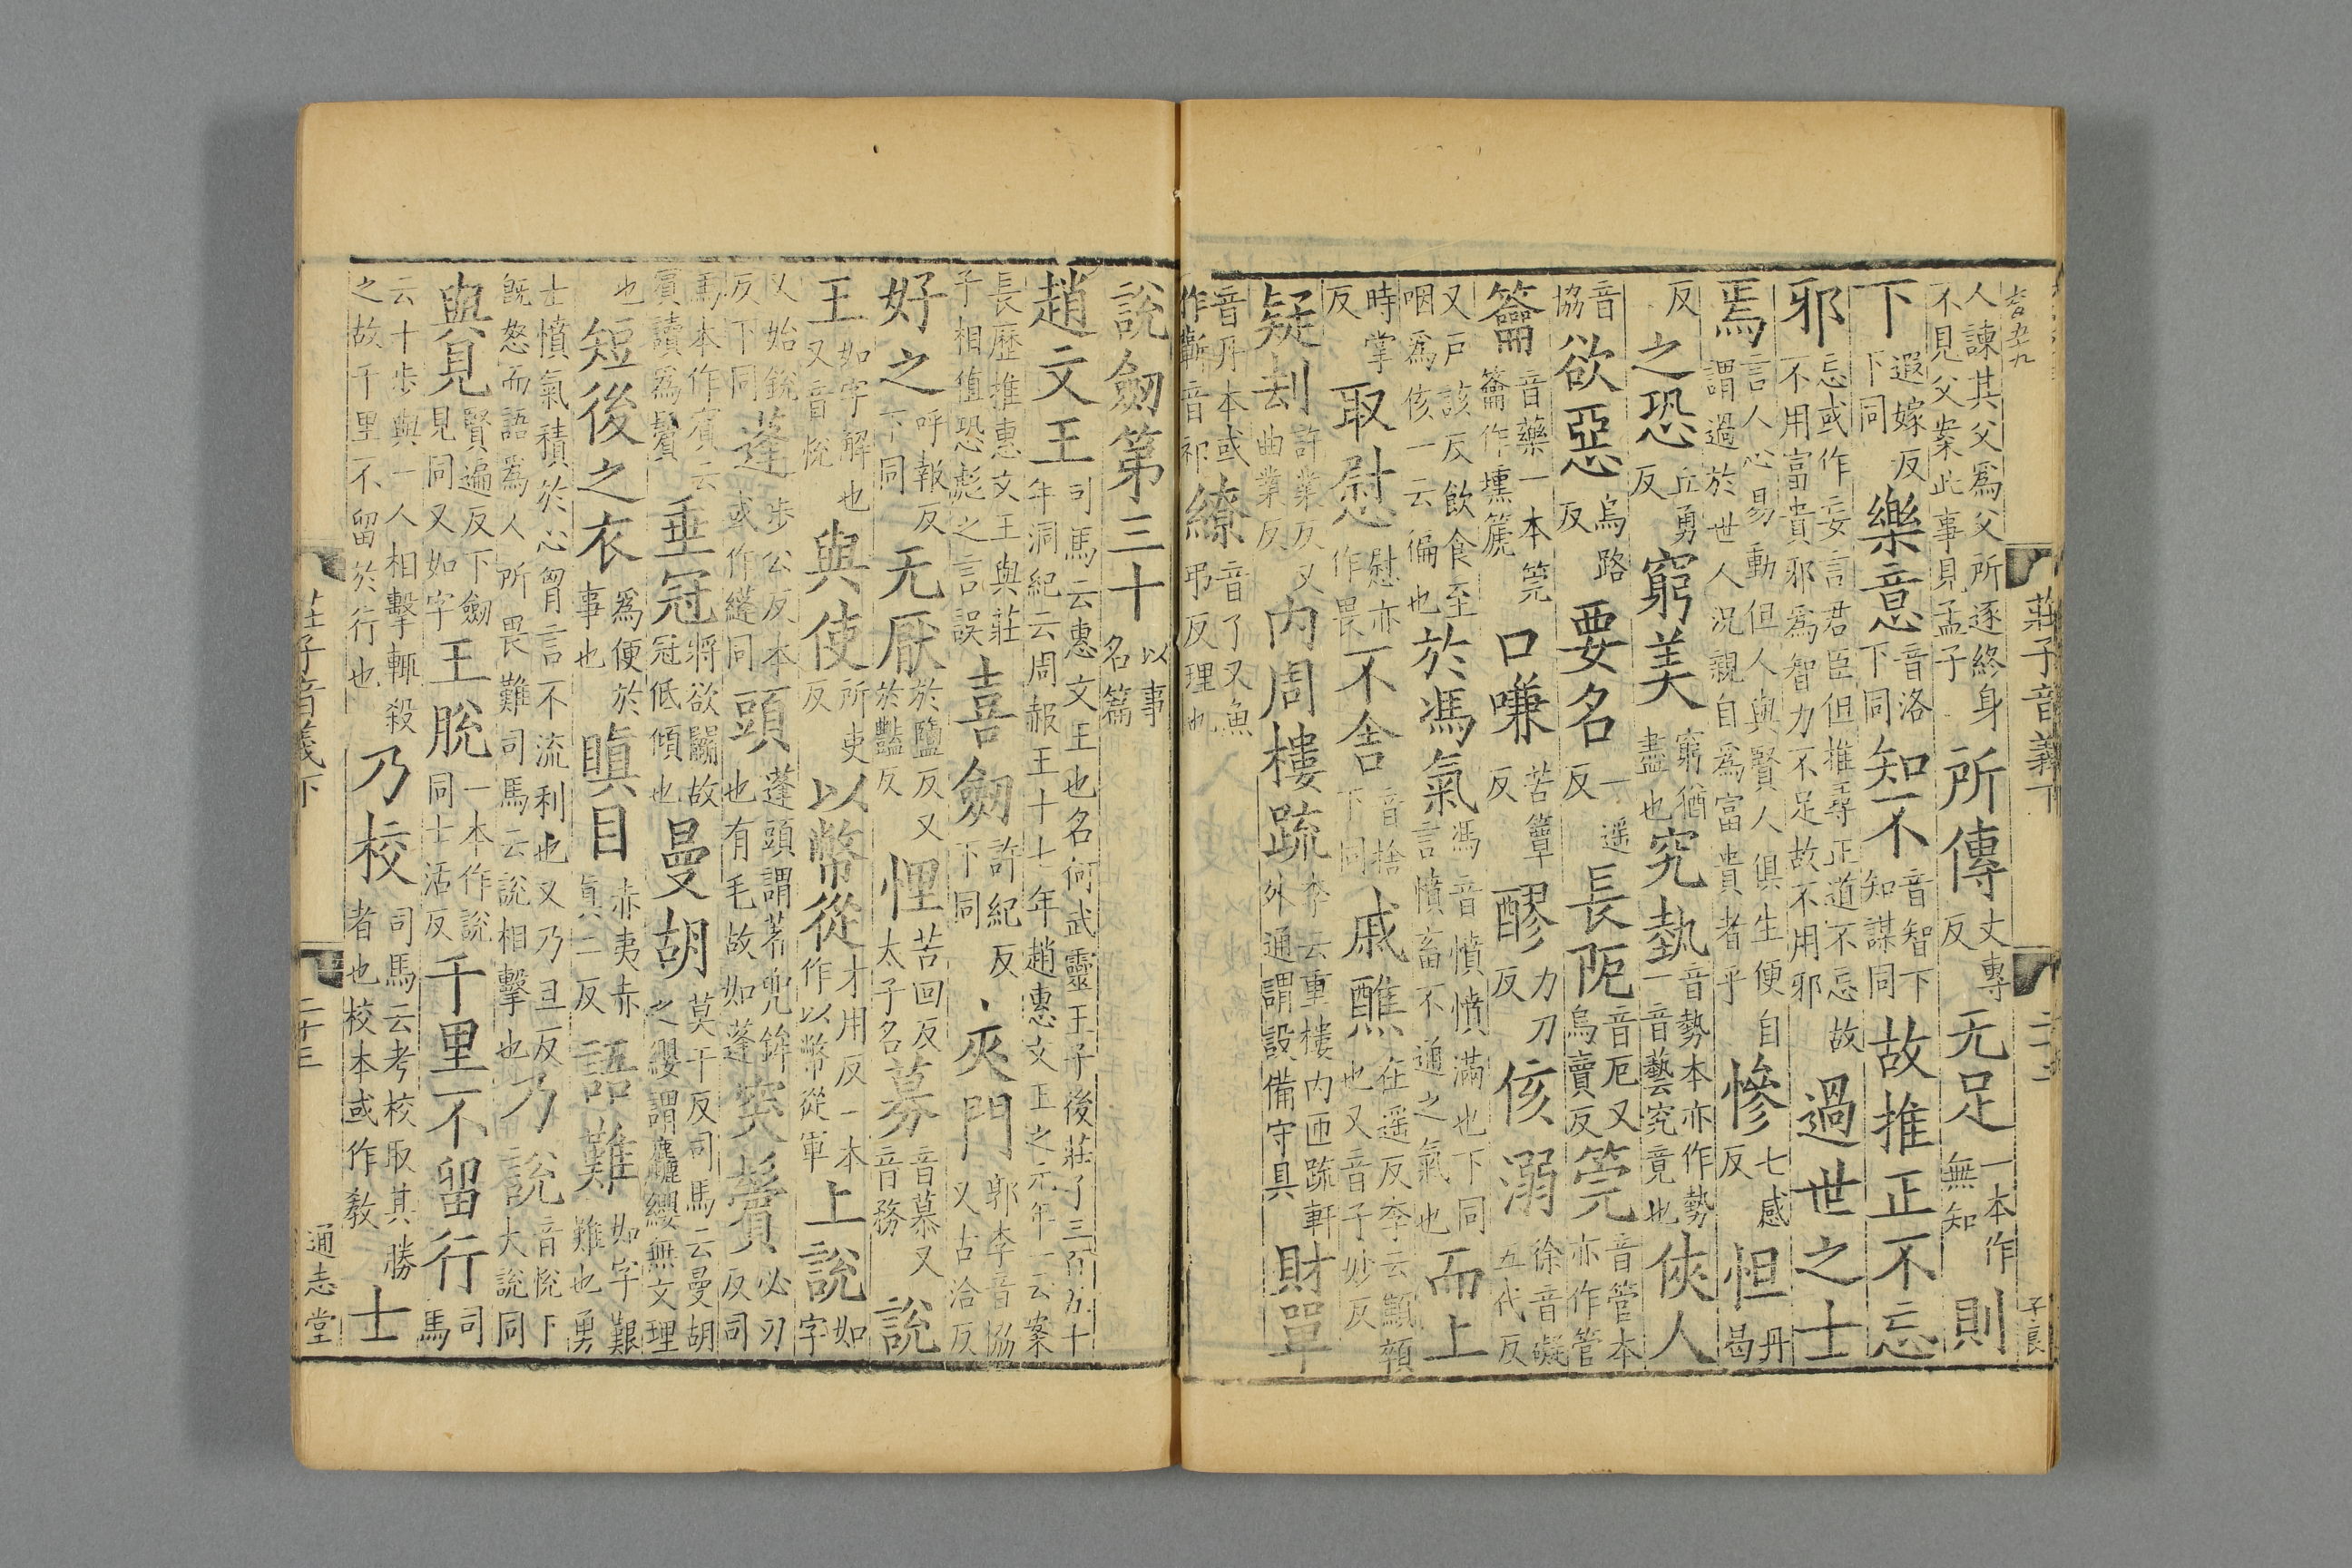 莊子音義下 二十二 子良
人諫其父爲父所逐終身不見父案此事見孟子所傳丈專反无足一本作無知則
下遐嫁反下同樂意音洛下同知不音智下知謀同故推正不忘
邪忘或作妄言君臣但推尋正道不忘故不用富貴邪爲智力不足故不用邪過世之士
焉言人心易動但人與賢人俱生便自謂過於世人況親自爲富貴者乎慘七感反怛丹曷
反之恐丘勇反窮美窮猶盡也究埶音勢本亦作勢一音藝究竟也俠人
音協欲惡烏路反要名一遥反長阨音厄又烏賣反筦音管本亦作管
籥音藥一本筦籥作壎篪口嗛苦簟反醪力刀反侅溺徐音礙五代反
又戶該反飲食至咽爲侅一云徧也於馮氣馮音憤憤滿也下同言憤畜不通之氣也而上
時掌反取慰慰亦作畏不舍音捨下同戚醮在遥反李云顦顇也又音子妙反
疑刦許業反又曲業反内周樓疏李云重樓内匝疏軒外通謂設備守具財單
音丹本或作蘄音祁繚音了又魚弔反理也
說劒第三十以事名篇
趙文王司馬云惠文王也名何武靈王子後莊子三百五十年洞紀云周赧王十七年趙惠文王之元年一云案
長歷推惠文王與莊子相值恐彪之言誤喜劒許紀反下同夾門郭李音協又古洽反
好之呼報反下同无厭於鹽反又於豔反悝苦回反太子名募音慕又音務說
王如字解也又音悅與使所吏反以幣從才用反一本作以幣從軍上說如字
又始銳反下同蓬步公反本或作縫同頭蓬頭謂著兜鉾也有毛故如蓬突鬢必刃反司
馬本作賓云賓讀爲鬢垂冠將欲鬭故冠低傾也曼胡莫干反司馬云曼胡之纓謂麤纓無文理
也短後之衣爲便於事也瞋目赤夷赤眞二反語難如字艱難也勇
士憤氣積於心胷言不流利也又乃旦反旣怒而語爲人所畏難司馬云說相擊也乃說音悅下大說同
與見賢遍反下劒見同又如字王脫一本作說同土活反千里不留行司馬
云十步與一人相擊輒殺之故千里不留於行也乃校司馬云考校取其勝者也校本或作敎士
莊子音義下 二十三 通志堂